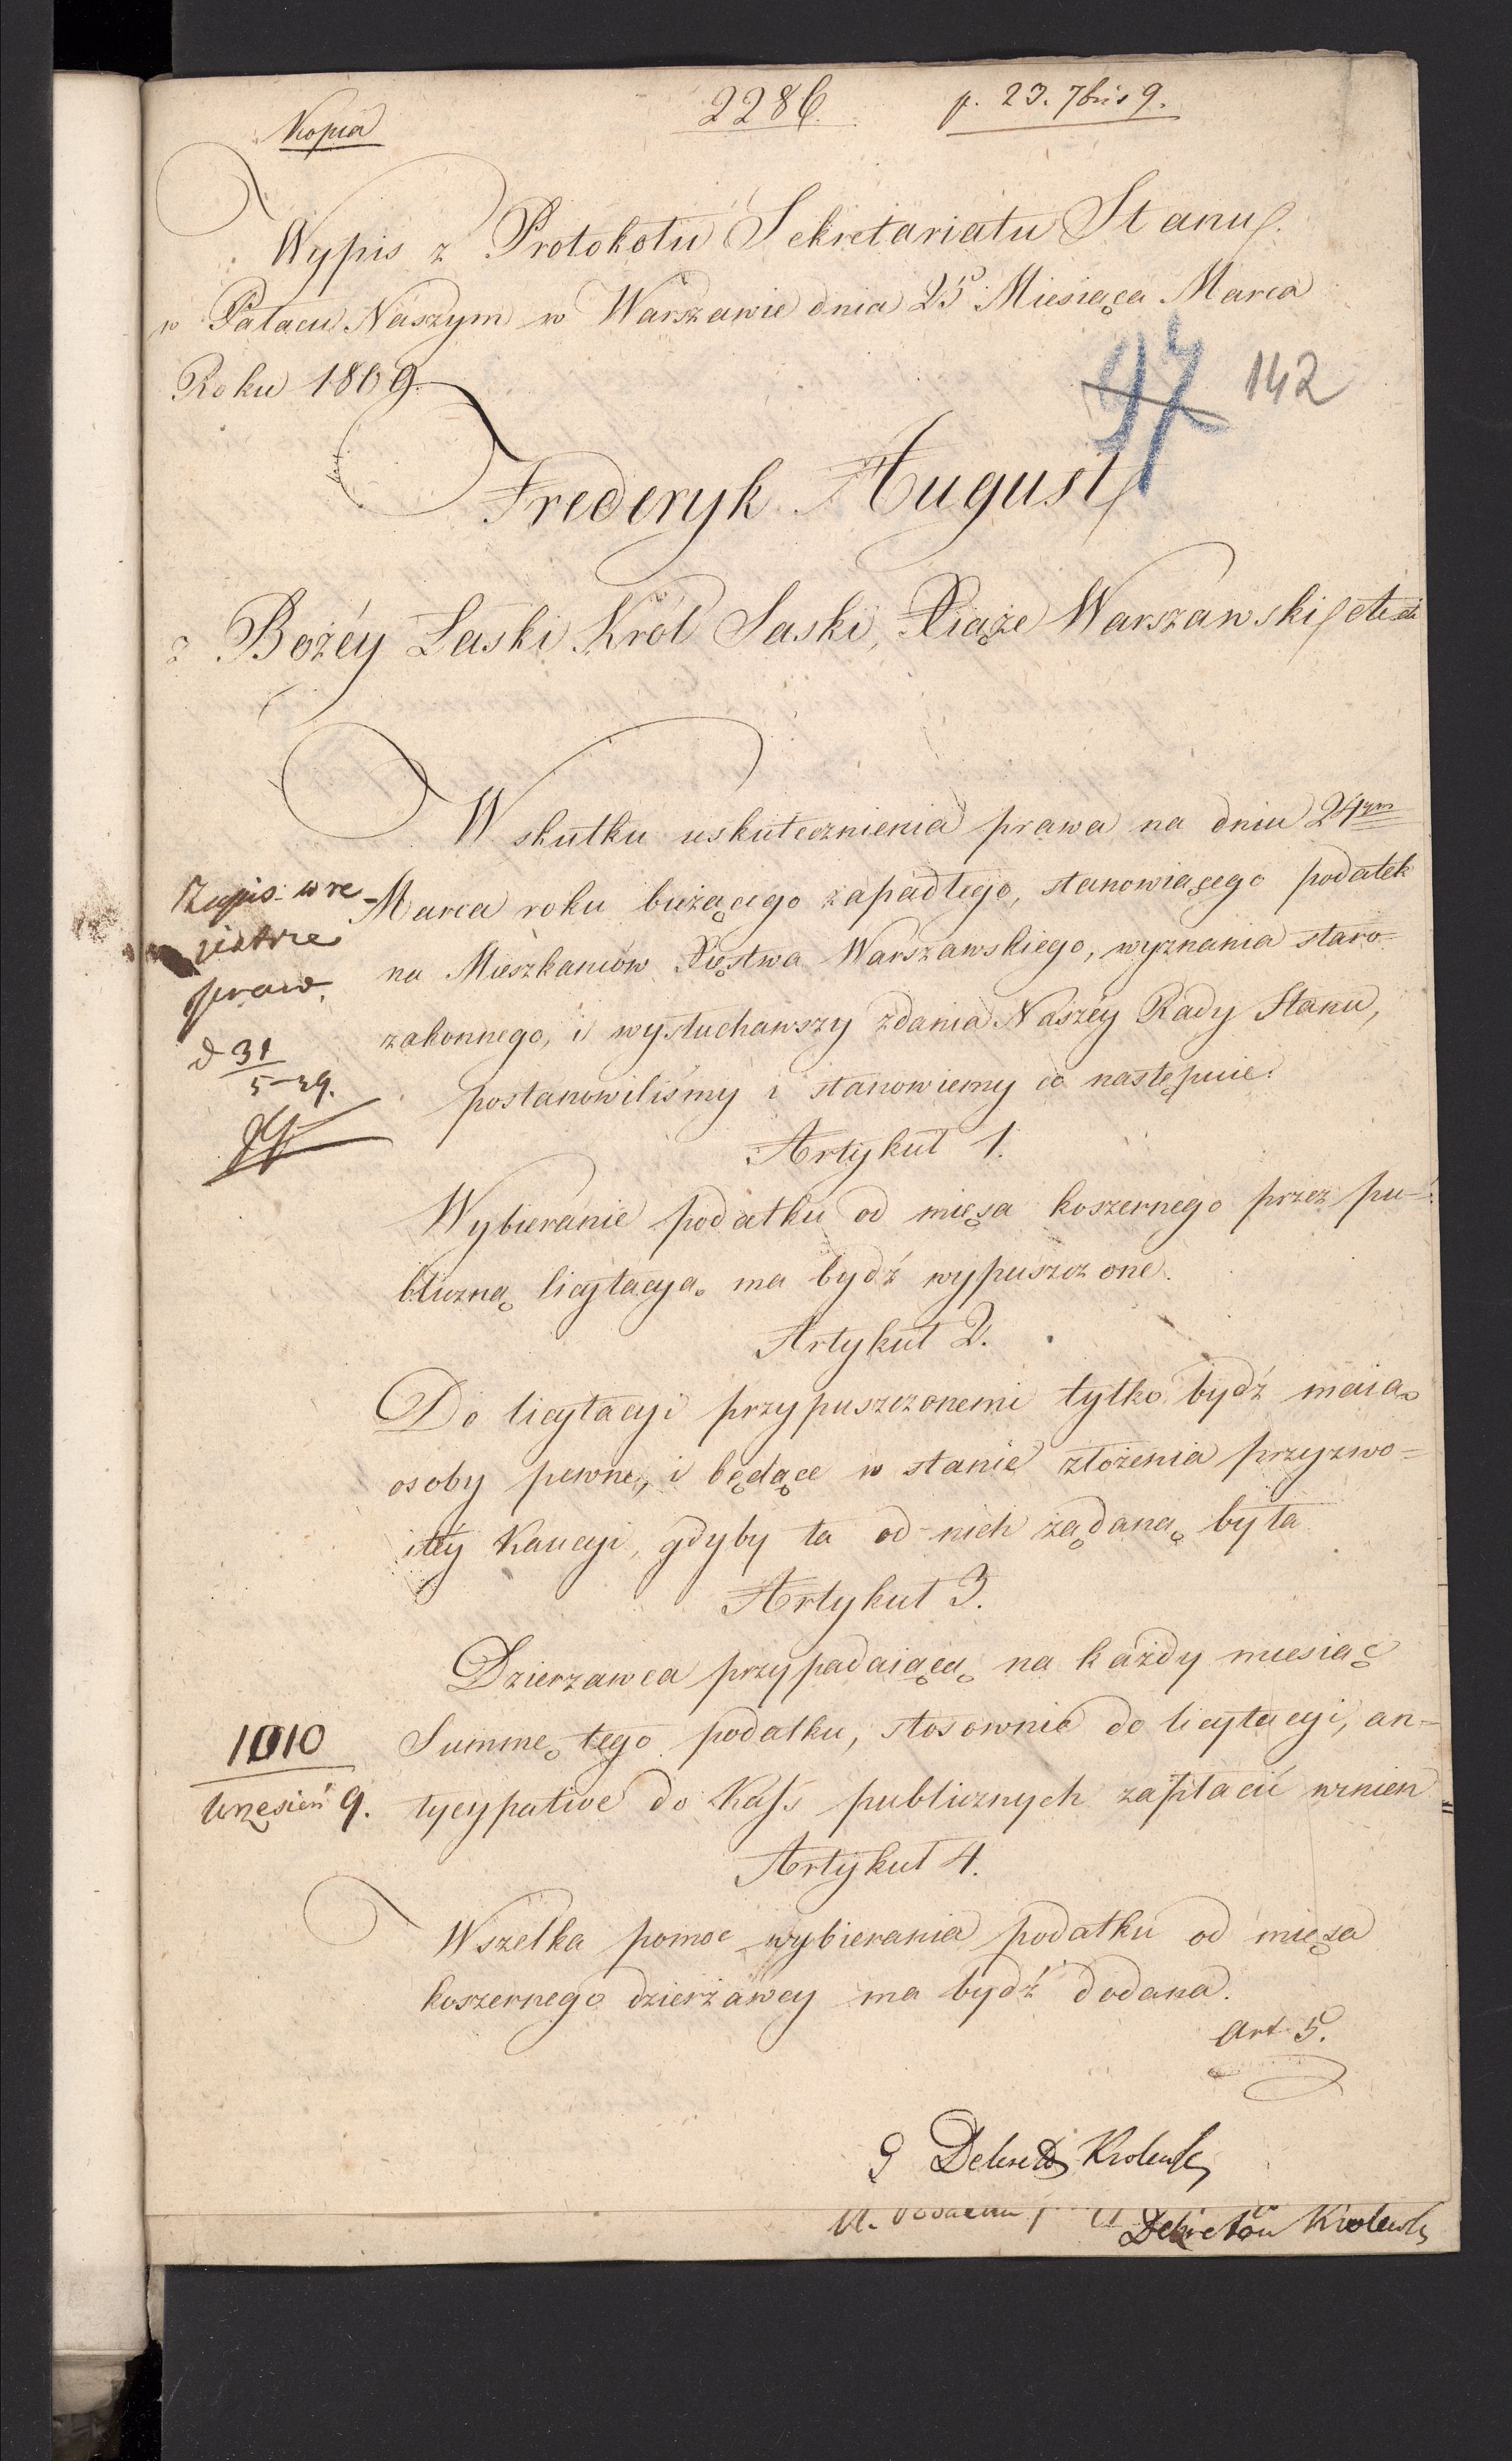 Kopia
2286.
p. 23. 7bris 9.
Wypis z Protokołu Sekretariatu Stanu.
w Pałacu Naszym w Warszawie dnia 25 Miesiąca Marca
Roku 1809.
97 142
Frederyk August
z Bożéy Łaski Król Saski, Xiąże Warszawski etc etc
W skutku uskutecznienia prawa na dniu 24ym
Marca roku bieżącego zapadłego, stanowiącego podatek
na Mieszkańców Xięstwa Warszawskiego, wyznania staro-
zakonnego, i wysłuchawszy zdania Naszéy Rady Stanu,
postanowiliśmy i stanowiemy co następuie:
Zapis: w re-
jestrze
spraw.
d 31
5-29.
Artykuł 1.
Wybieranie podatku od mięsa koszernego przez pu-
bliczną licytacyą ma bydź wypuszczone.
Artykuł 2.
Do licytacyi przypuszczonemi tylko bydź maią
osoby pewne, i będące w stanie złożenia przyzwo=
itéy Kaucyi, gdyby ta od nich żądaną była
Artykuł 3.
Dzierzawca przypadaiącą na każdy miesiąc
Summę tego podatku, stosownie do licytacyi, an=
tycypative do Kass publicznych zapłacić winien
1010
Wrzesień 9.
Artykuł 4.
Wszelka pomoc wybierania podatku od mięsa
koszernego dzierżawcy ma bydź dodana.
Art. 5.
Dekretów Krolewsk
Dekretów Krolewsk